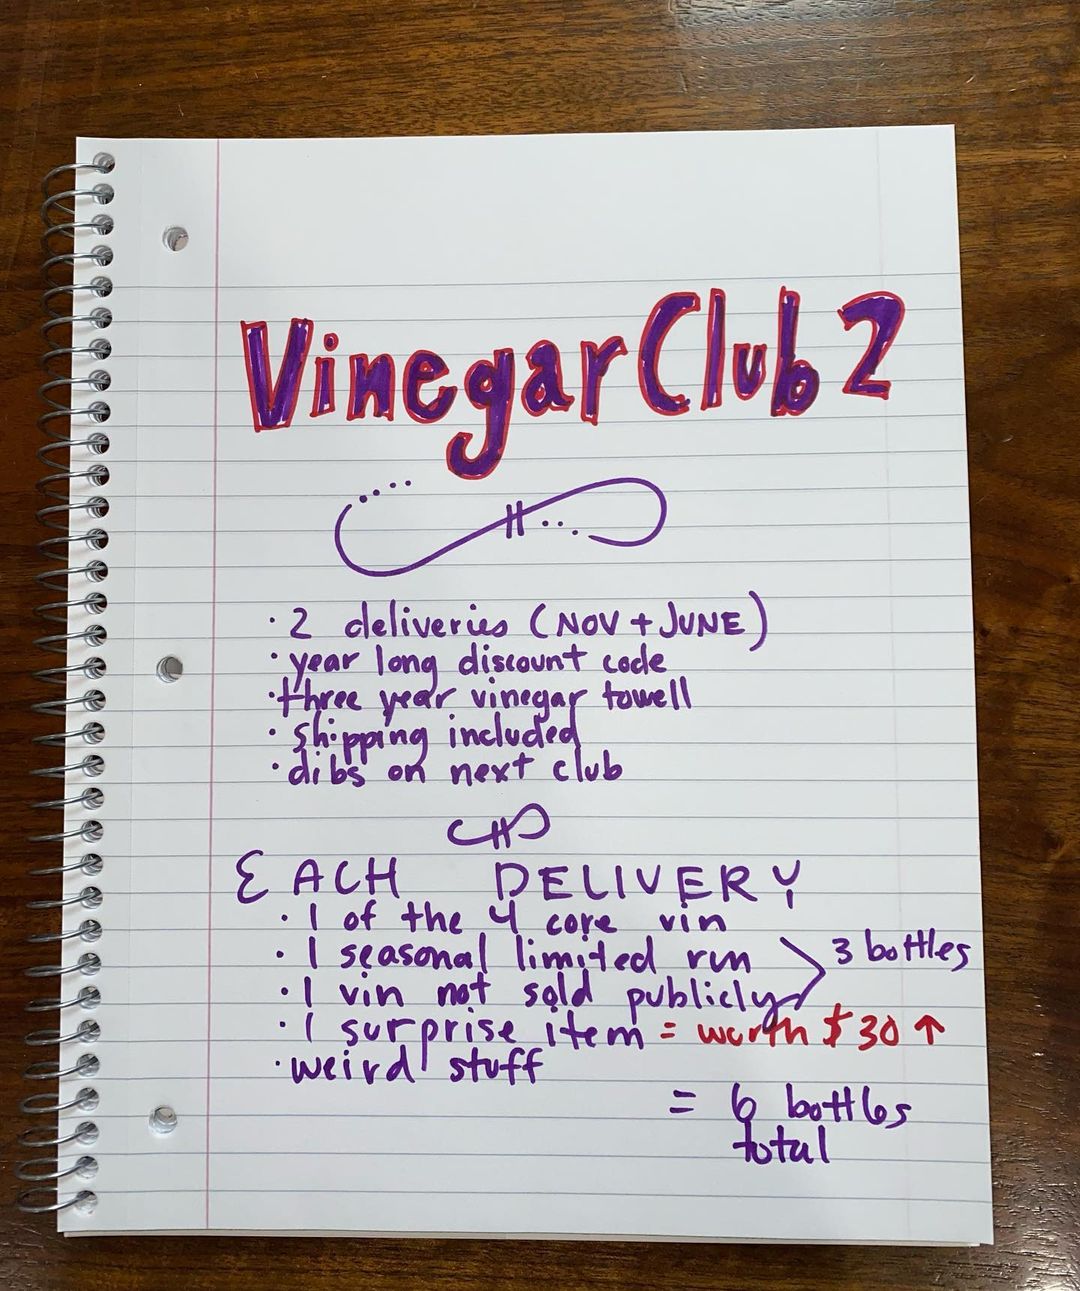 Vinegar Club 2
· 2 deliveries (NOV + JUNE)
· year long discount code
· three year vinegar towell
· shipping included
· dibs on next club
EACH DELIVERY
· 1 of the 4 core vin
· 1 seasonal limited run
3 bottles
· 1 vin not sold publicly
· 1 surprise item = worth $30 ↑
· weird stuff
= 6 bottles
total